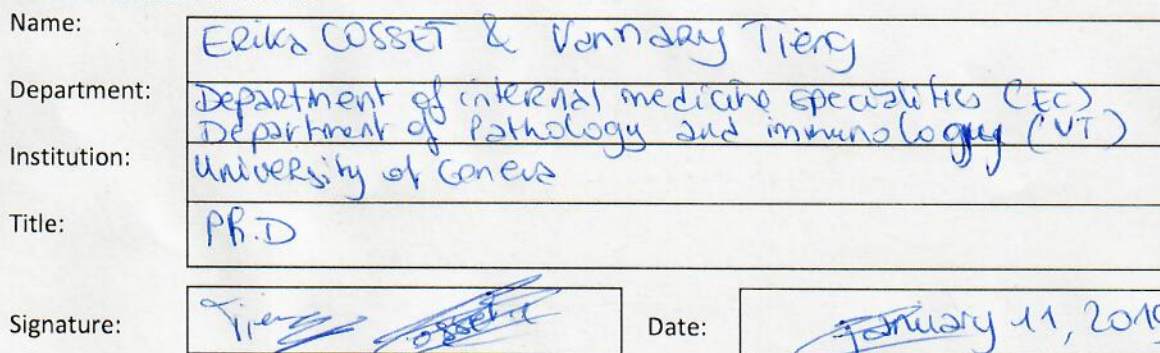 Name: Erika COSSET & Vannary Tieng
Department: Department of internal medicine specialities (EC)
Department of Pathology and immunology (VT)
Institution: University of Geneva
Title: Ph.D
Signature: Tieng Cosset Date: January 11, 2019